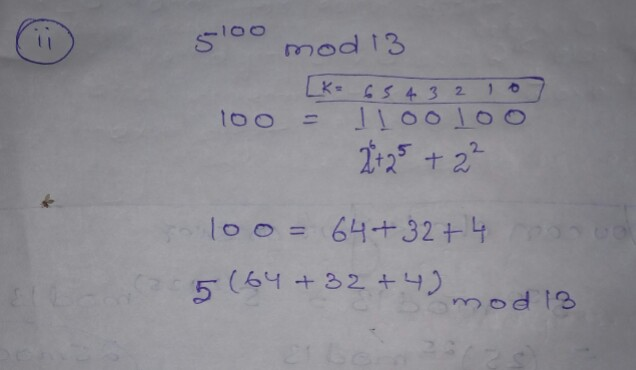 ii
5^100 mod 13
K= 6 5 4 3 2 1 0
100 = 1100100
2^6+2^5 + 2^2
100 = 64+32+4
5^(64+32+4) mod 13